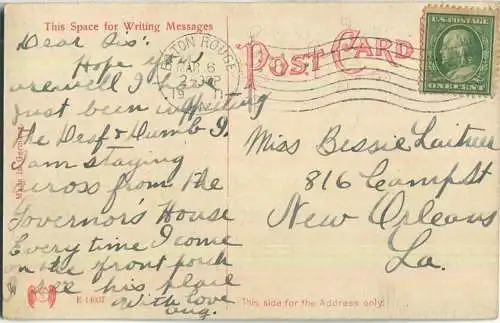 This Space for Writing Messages
Dear Sis:
Hope you
are well I have
just been visiting
the Deaf & Dumb I.
I am staying
across from the
Governor's House
Every time I come
on the front porch
I see his place
With love
Aug.
Made in Germany
E-14007
BATON ROUGE
MAR 6
POST CARD
U.S. POSTAGE
ONE CENT
Miss Bessie Laitner
816 Camp St
New Orleans
La.
This side for the Address only.